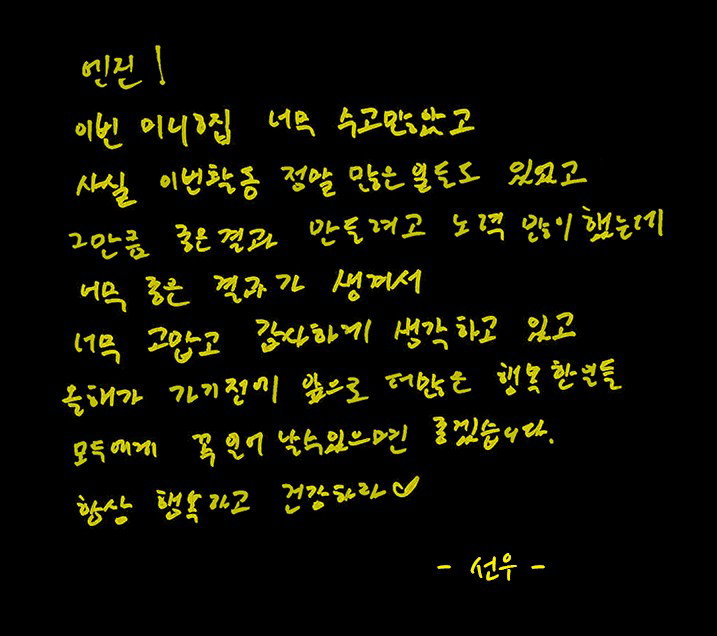 엔진!
이번 미니3집 너무 수고많았고
사실 이번활동 정말 많은 일들도 있었고
그만큼 좋은결과 만들려고 노력 많이 했는데
너무 좋은 결과가 생겨서
너무 고맙고 감사하게 생각하고 있고
올해가 가기전에 앞으로 더많은 행복한일들
모두에게 꼭 일어 날수있으면 좋겠습니다.
항상 행복하고 건강하라♡
- 선우 -